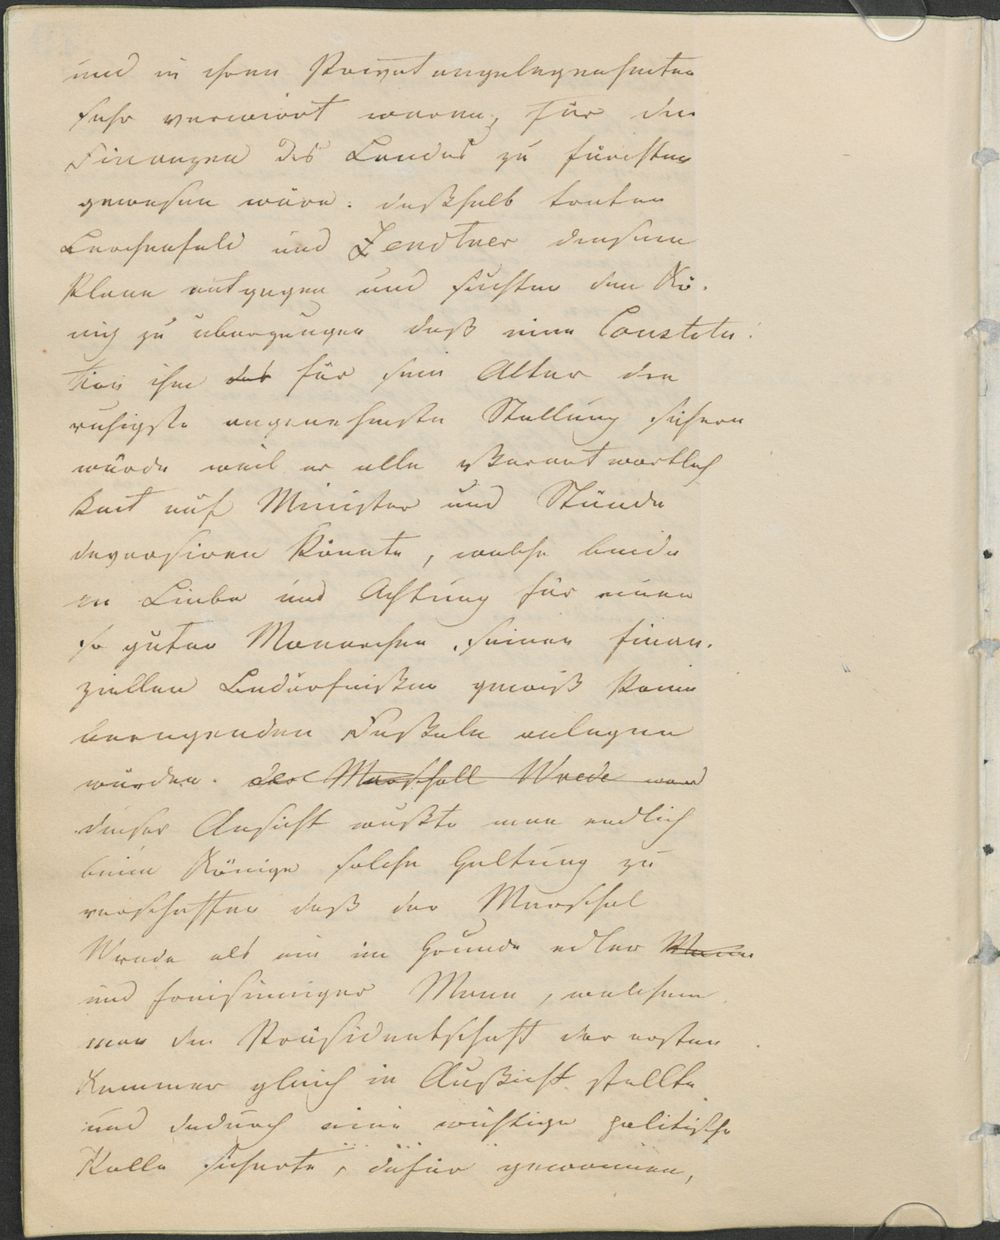 und in ihren Privatangelegenheiten
sehr verwirrt waren, für die
Finanzen des Landes zu fürchten
gewesen wäre. deßhalb traten
Lerchenfeld und Zentner diesem
Plane entgegen und suchten den Kö-
nig zu überzeugen daß eine Constitu-
tion ihm das für sein Alter die
ruhigste angenehmste Stellung sichern
würde weil er alle Verantwortlich
keit auf Minister und Stände
deversiren könnte, welche beide
in Liebe und Achtung für einen
so guten Monarchen seinen finan-
ziellen Bedürfnißen gewiß keine
beengenden Feßeln anlegen
würden. der Marschall Wrede ward
dieser Ansicht wußte man endlich
beim Könige solche Geltung zu
verschaffen daß der Marschal
Wrede als ein im Grunde edler Mann
und freisinniger Mann, welchem
man die Präsidentschaft der ersten
Kammer gleich in Außicht stellte
und dadurch eine wichtige politische
Rolle sicherte, dafür gewonnen,